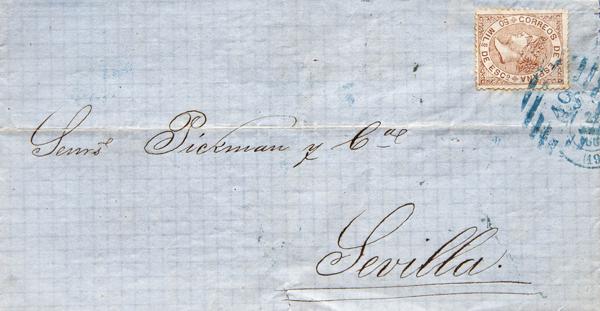 CORREOS DE ESPAÑA
50 MIL.S DE ESC.S
Senrs. Pickman y Cae
Sevilla.